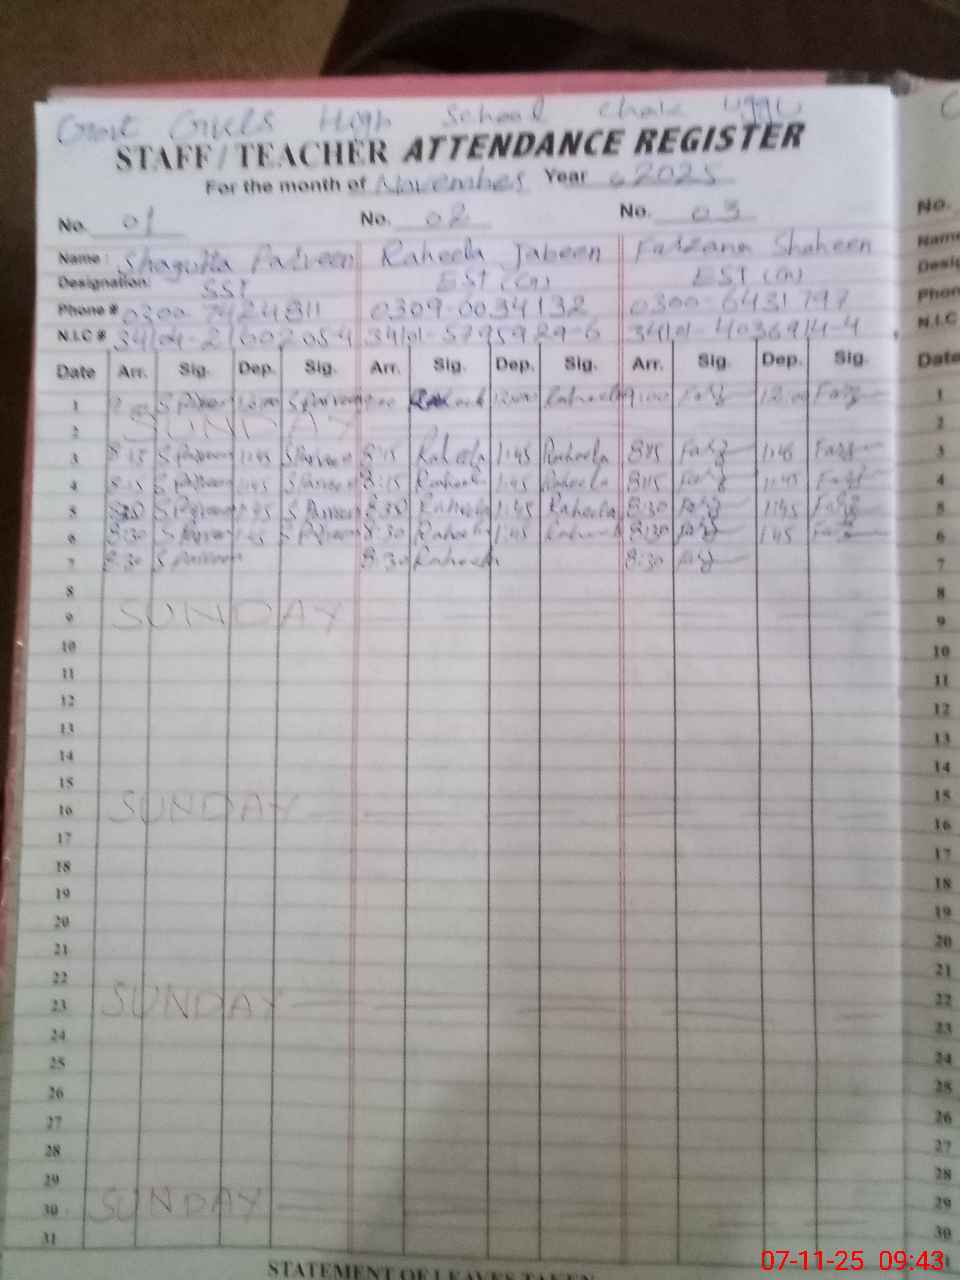 Govt Girls High School Chak
STAFF / TEACHER ATTENDANCE REGISTER
For the month of November Year 2025
No. 01 No. 02 No. 03 No.
Name: Shagufta Parveen Raheela Jabeen Farzana Shaheen Name
Designation: SST EST (G) EST (G) Desig
Phone # 0300-7424811 0309-0034132 0300-6431797 Phon
N.I.C # 34101-5795929-6 34101-4036914-4 N.I.C
Date Arr. Sig. Dep. Sig. Arr. Sig. Dep. Sig. Arr. Sig. Dep. Sig. Date
1 S Parveen 12:00 S Parveen 12:00 Raheela 9:00 Farz 12:00 Farz 1
2 SUNDAY 2
3 8:15 S Parveen 1:45 S Parveen 8:15 Raheela 1:45 Raheela 8:15 Farz 1:45 Farz 3
4 8:15 S Parveen 1:45 S Parveen 8:15 Raheela 1:45 Raheela 8:15 Farz 1:45 Farz 4
5 S Parveen 1:45 S Parveen 8:30 Raheela 1:45 Raheela 8:30 Farz 1:45 Farz 5
6 8:30 S Parveen 1:45 S Parveen 8:30 Raheela 1:45 Raheela 8:30 Farz 1:45 Farz 6
7 8:30 S Parveen 8:30 Raheela 8:30 Farz 7
8 8
9 SUNDAY 9
10 10
11 11
12 12
13 13
14 14
15 15
16 SUNDAY 16
17 17
18 18
19 19
20 20
21 21
22 22
23 SUNDAY 23
24 24
25 25
26 26
27 27
28 28
29 29
30 SUNDAY 30
31 31
STATEMENT OF LEAVES TAKEN
07-11-25 09:43